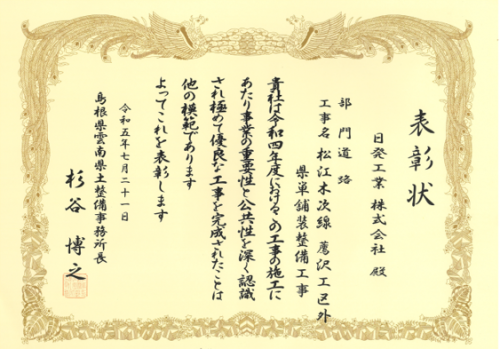 表彰状
日発工業 株式会社 殿
部門道路
工事名 松江木次線 鷹沢工区外
県単舗装整備工事
貴社は令和四年度におけるこの工事の施工に
あたり事業の重要性と公共性を深く認識
され極めて優良な工事を完成されたことは
他の模範であります
よってこれを表彰します
令和五年七月二十一日
島根県雲南県土整備事務所長
杉谷 博之